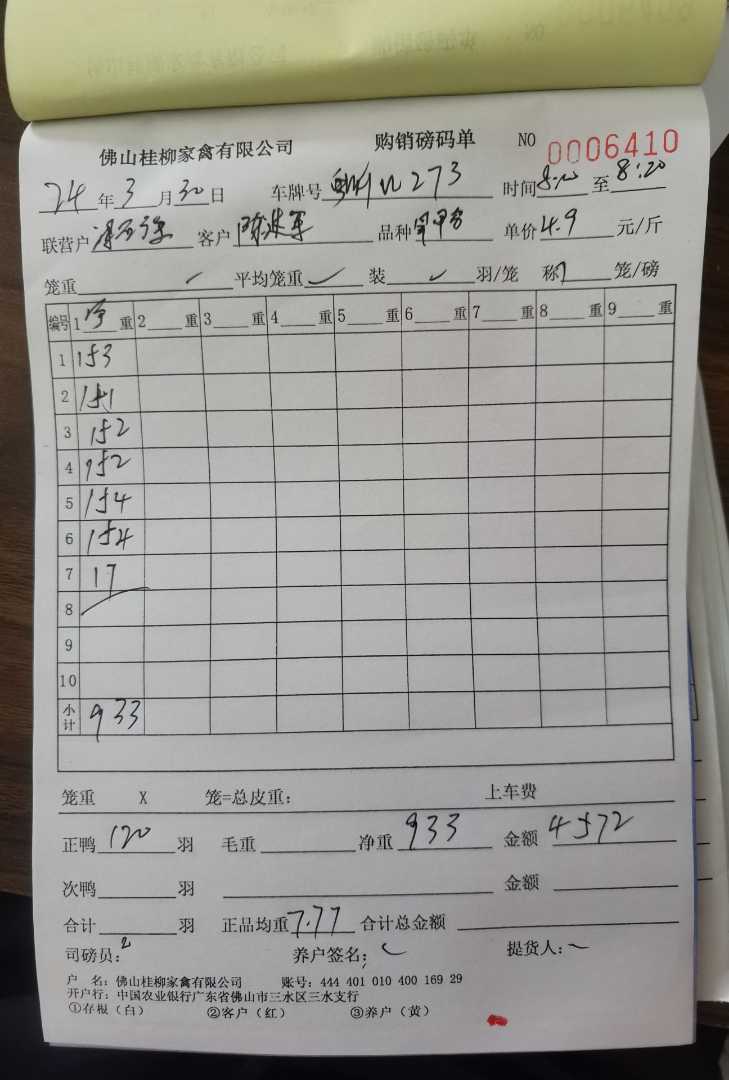 佛山桂柳家禽有限公司 购销磅码单 NO 0006410
24年3月30日 车牌号 273 时间8:10至8:20
联营户 客户 品种 单价4.9元/斤
笼重 平均笼重 装 羽/笼 称 笼/磅
编号 1净重 2重 3重 4重 5重 6重 7重 8重 9重
1 153
2 151
3 152
4 152
5 154
6 154
7 17
8
9
10
小计 933
笼重 X 笼=总皮重: 上车费
正鸭120羽 毛重 净重933 金额4572
次鸭 羽 金额
合计 羽 正品均重7.77 合计总金额
司磅员: 养户签名: 提货人:
户 名:佛山桂柳家禽有限公司 账号:444 401 010 400 169 29
开户行:中国农业银行广东省佛山市三水区三水支行
①存根(白) ②客户(红) ③养户(黄)